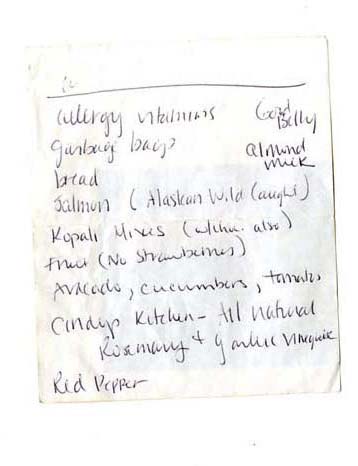 allergy vitamins
Good
Belly
garbage bags
almond
milk
bread
Salmon (Alaskan Wild Caught)
Kopali Mixes (also)
Fruit (No Strawberries)
Avacado, cucumbers, tomatos
Cindys Kitchen - All Natural
Rosemary + garlic vinegarette
Red Pepper